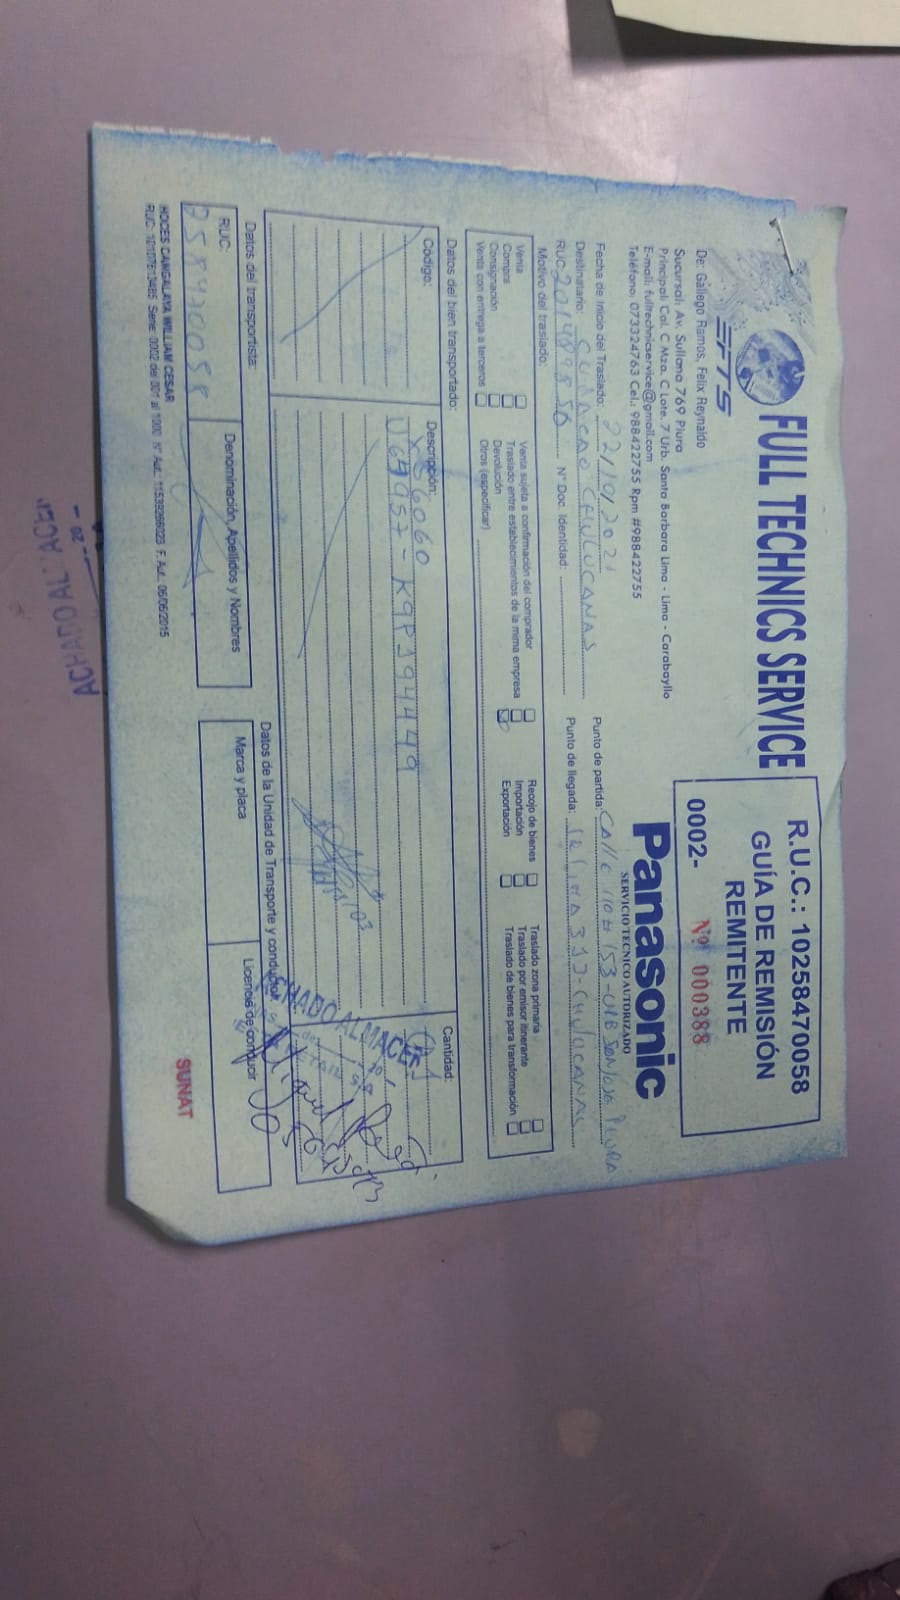 EFTS
FULL TECHNICS SERVICE
De: Gallego Ramos, Felix Reynaldo
Sucursal: Av. Sullana 769 Piura
Principal: Cal. C Mza. C Lote. 7 Urb. Santa Barbara Lima - Lima - Carabayllo
E-mail: fulltechnicservice@gmail.com
Teléfono: 073324763 Cel.: 988422755 Rpm #988422755
R.U.C.: 10258470058
GUÍA DE REMISIÓN
REMITENTE
0002- Nº 000388
Panasonic
SERVICIO TECNICO AUTORIZADO
Fecha de Inicio del Traslado: 22/10/2021
Punto de partida: CALLE 110 # 153-URB SAN JOSE PIURA
Destinatario: CHULUCANAS
Punto de llegada: LIMA CHULUCANAS
RUC: N° Doc. Identidad:
Motivo del traslado:
Venta
Compra
Consignación
Venta con entrega a terceros
Venta sujeta a confirmación del comprador
Traslado entre establecimientos de la mima empresa
Devolución
Otros (especificar)
Recojo de bienes
Importación
Exportación
Traslado zona primaria
Traslado por emisor itinerante
Traslado de bienes para transformación
Datos del bien transportado:
Código: Descripción: Cantidad:
6060
K9P194449
Datos del transportista:
RUC: Denominación, Apellidos y Nombres
258470058
Datos de la Unidad de Transporte y conductor
Marca y placa Licencia de conducir
HOCES CANGALAYA WILLIAM CESAR
RUC: Serie: 0002 del 301 al 1000 N° Aut.: F. Aut.: 06/06/2015
SUNAT